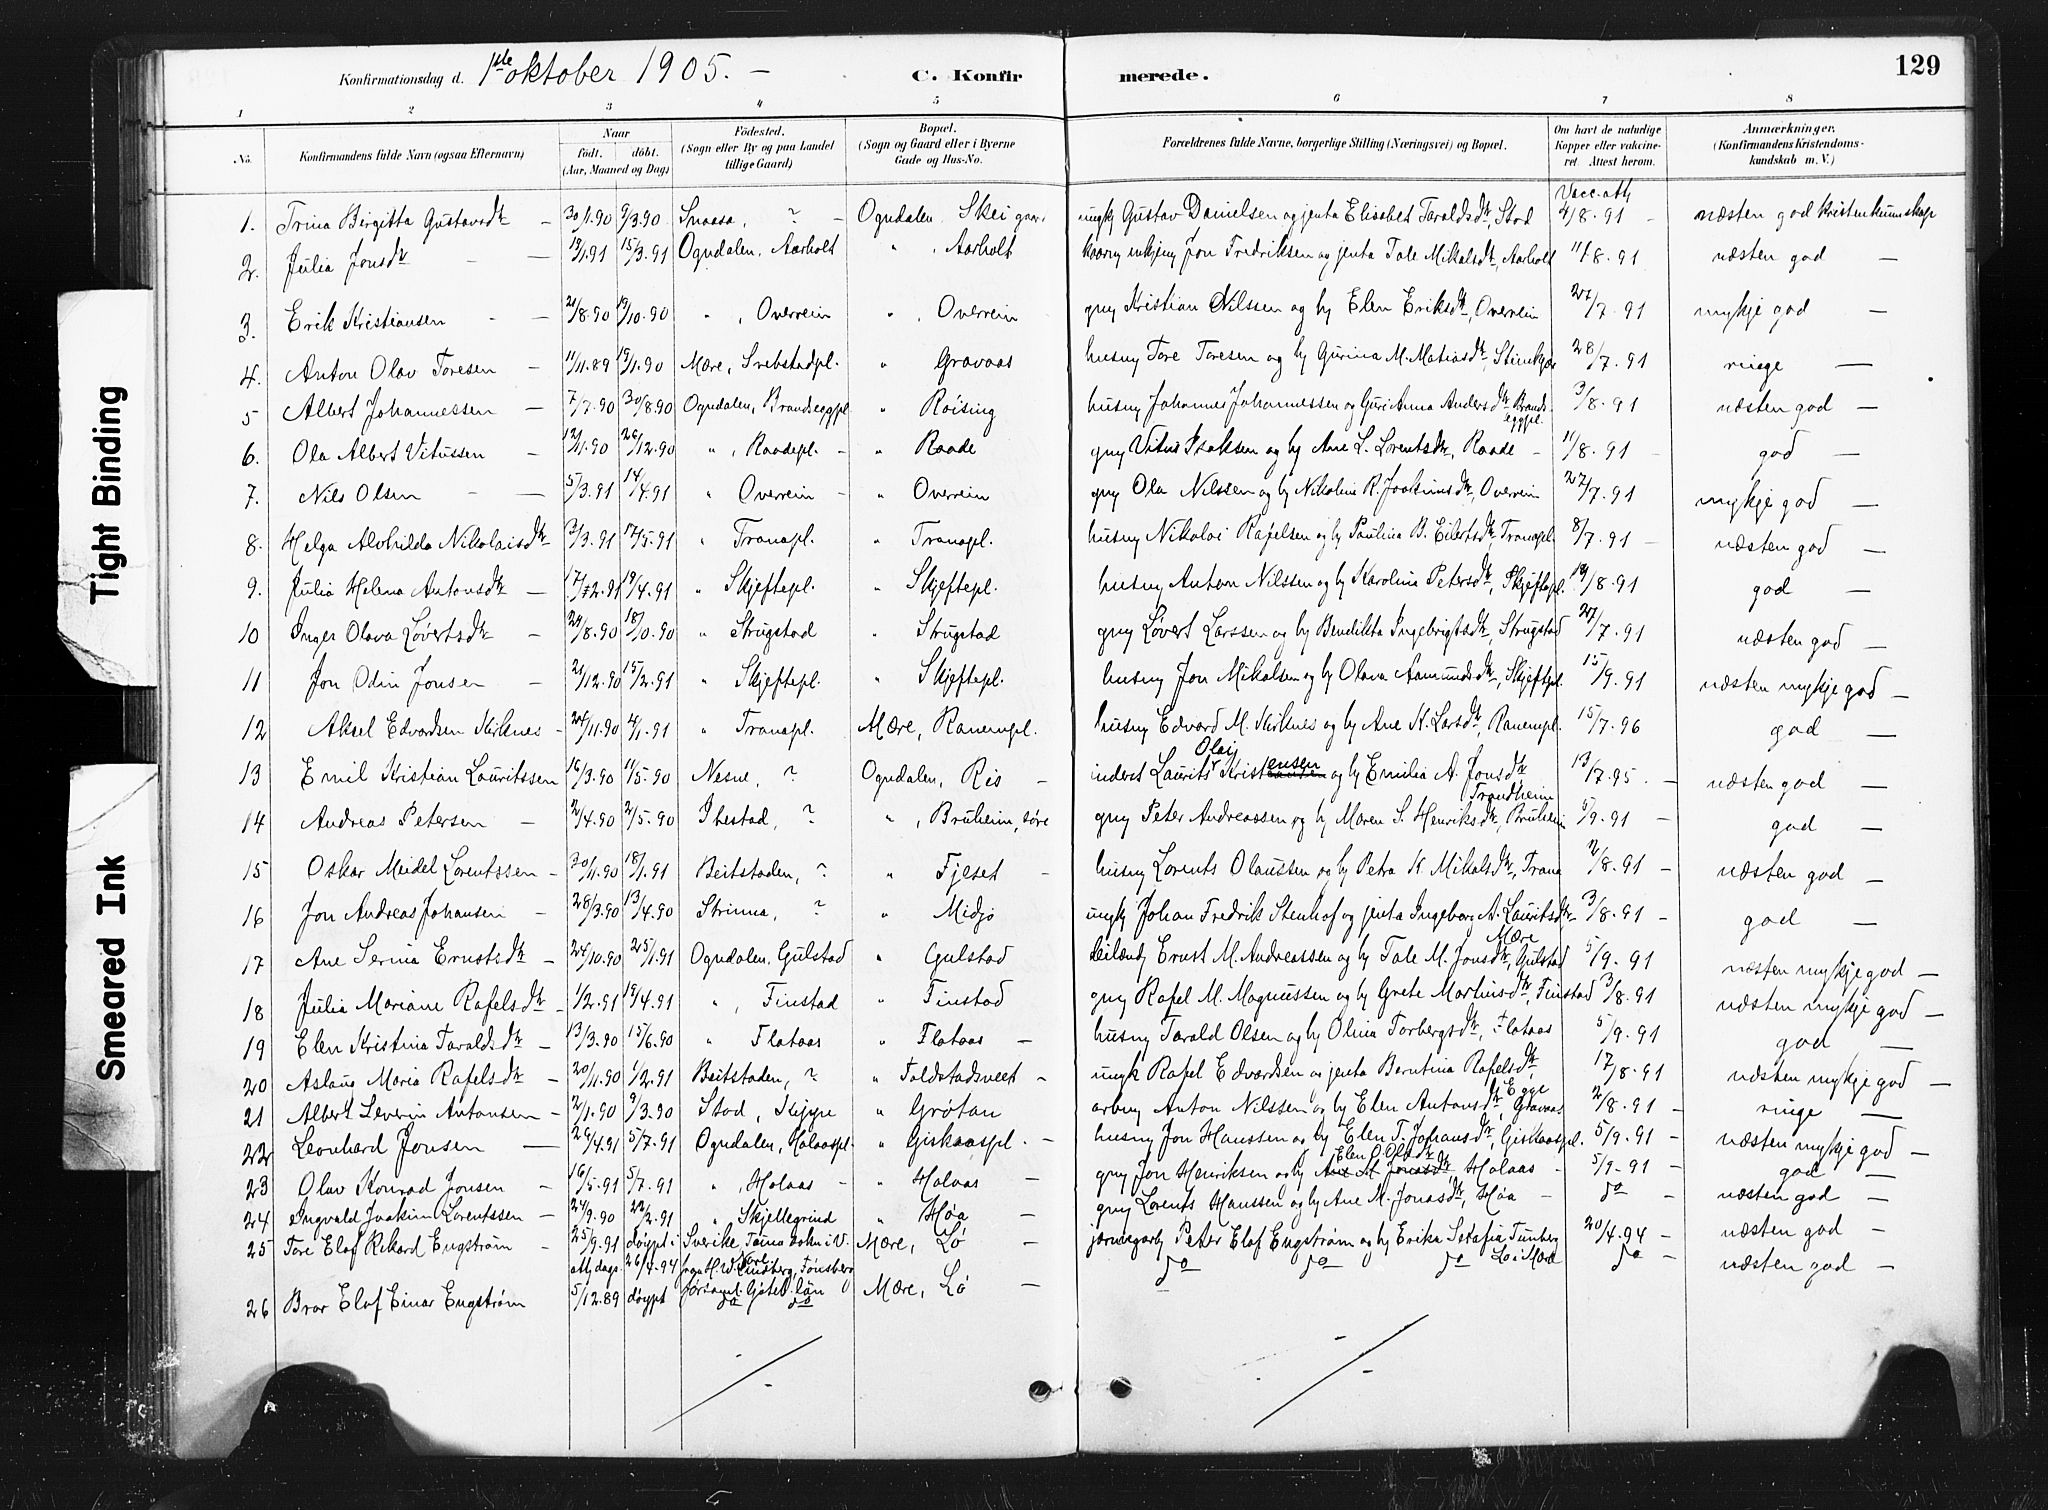 Konfirmationsdag d. 1ste oktober 1905. — C. Konfirmerede. 129
1 2 3 4 5 6 7 8
No. Konfirmandens fulde Navn (ogsaa Efternavn) Naar født. døbt. (Aar, Maaned og Dag) Fødested. (Sogn eller By og paa Landet tillige Gaard) Bopæl. (Sogn og Gaard eller i Byerne Gade og Hus-No. Forældrenes fulde Navne, borgerlige Stilling (Næringsvei) og Bopæl. Om havt de naturlige Kopper eller vakcineret. Attest herom. Anmærkninger. (Konfirmandens Kristendomskundskab m. V.)
Vacc. att
1. Trina Birgitta Gustavsdtr — 30/1.90 9/3.90 Snaasa, ? — Ogndalen, Skei ungk Gustav Danielsen og jenta Elisabet Taraldsdtr, Stod 4/8.91 — næsten god kristenkunnskap
2. Julia Jonsdtr — 19/1.91 15/3.91 Ogndalen, Aarholt " , Aarholt Jon Fredriksen og jenta Tale Mikalsdtr, Aarholt 11/8.91 næsten god —
3. Erik Kristiansen — 21/8.90 19/10.90 " , Overrein " , Overrein gmj Kristian Nilssen og hy Elen Eriksdtr, Overrein 27/7.91 mykje god —
4. Anton Olav Toresen — 11/11.89 19/1.90 Mære, Svebstadpl. " Gravaas husmj Tore Toresen og hy Gurina M. Matiasdtr, Stinkjær 28/7.91 ringe —
5 Albert Johannessen — 7/7.90 30/8.90 Ogndalen, Brandseggpl " Røising husmj Johannes Johannessen og Guri Anna Andersdtr Brandseggpl. 3/8.91 næsten god —
6. Ola Albert Vitussen — 12/11.90 26/12.90 " , Raadepl. — " Raade gmj Vitus Isaksen og hy Ane L. Lorentsdtr, Raade — 11/8.91 — god —
7. Nils Olsen — 5/3.91 14/4.91 " Overrein — " Overrein gmj Ola Nilssen og hy Nikoline R. Joakimsdtr, Overrein 27/7.91 mykje god —
8. Helga Alvhilda Nikolaisdtr 3/3.91 17/5.91 " Tranapl. " Tranapl. husmj Nikolai Rafelsen og hy Paulina B. Eilertsdtr, Tranapl. 8/7.91 — næsten god —
9. Julia Helena Antonsdtr — 17/2.91 19/4.91 " Skjeftepl. " Skjeftepl. husmj Anton Nilssen og hy Karolina Petersdtr, Skjeftepl. 19/8.91 god —
10 Inger Olava Løvertsdtr — 24/8.90 18/10.90 " Strugstad " Strugstad gmj Løvert Larssen og hy Bendikta Ingebrigtsdtr, Strugstad 27/7.91 næsten god —
11 Jon Odin Jonsen — 21/12.90 15/2.91 " Skjeftepl. " Skjeftepl. husmj Jon Mikalsen og hy Olava Aamundsdtr, Skjeftpl. 15/9.91 næsten mykje god —
12 Aksel Edvardsen Kirknes — 24/11.90 4/1.91 " Tranapl. Mære, Ranempl. husmj Edvard M. Kirknes og hy Ane K. Larsdtr, Ranempl. 15/7.96 god —
13 Emil Kristian Lauritssen 16/3.90 11/5.90 Nesne, ? Ogndalen, Ris — inderst Laurits Olaij Kristensen og hy Emilia A. Jonsdtr Trondheim 13/7.95. — næsten god —
14 Andreas Petersen — 2/4.90 2/5.90 Ibestad, ? " , Bruheim, søre gmj Peter Andreassen og hy Maren S. Henriksdtr, Bruheim 5/9.91 — god —
15 Oskar Meidel Lorentssen — 30/11.90 18/1.91 Beitstaden, ? " Fjeset — husmj Lorents Olaussen og hy Petra K. Mikalsdtr, Trana 2/8.91 — næsten god —
16 Jon Andreas Johansen — 28/3.90 13/4.90 Strinna, ? " Midjo ungk Johan Fredrik Stenhof og jenta Ingeborg A. Lauritsdtr — 3/8.91 — god —
17 Ane Serina Ernstsdtr — 24/10.90 25/1.91 Ogndalen, Gulstad " Gulstad leilænd Ernst M. Andreassen og hy Tale M. Jonsdtr, Mære Gulstad 5/9.91 næsten mykje god —
18 Julia Mariane Rafelsdtr — 1/2.91 19/4.91 " , Finstad " Finstad gmj Rafel M. Magnussen og hy Grete Martinsdtr, Finstad 3/8.91 næsten mykje god —
19 Elen Kristina Taraldsdtr — 13/3.90 15/6.90 " Flataas " Flataas — husmj Tarald Olsen og hy Olina Torbergsdtr, Flataas 5/9.91 god —
20 Aslaug Maria Rafelsdtr — 20/11.90 1/2.91 Beitstaden, ? " Foldstadsveet — ungk Rafel Edvardsen og jenta Berntina Rafelsdtr, Egge 17/8.91 næsten mykje god —
21 Albert Severin Antonsen — 2/1.90 9/3.90 Stod, Skjyre " Grøtan arbmj Anton Nilssen og hy Elen Antonsdtr, Gravaas 2/8.91 — ringe —
22 Leonhard Jonsen — 26/4.91 5/7.91 Ogndalen, Holaaspl. " Giskaaspl. — husmj Jon Hanssen og hy Elen T. Johansdtr, Giskaaspl. 5/9.91 — næsten mykje god —
23 Olav Konrad Jonsen — 16/5.91 5/7.91 " , Holaas — " Holaas — gmj Jon Henriksen og hy Elen O. Olsdtr Ane M. Jonasdtr Holaas — 5/9.91 — god —
24 Ingvald Joakim Lorentssen — 24/9.90 22/2.91 " Skjellegrind " Høa — gmj Lorents Hanssen og hy Ane M. Jonasdtr, Høa — do — næsten god —
25 Tore Elof Rikard Engstrøm — 25/9.91 døypt i Sverike, Mære, Lø — Peter Elof Engstrøm og hy Erika Serafia Tunberg Lø i Mære 20/4.94 — næsten god —
att, dags. 26/4.94 fraa H. W. Lindberg, Tønsberg
26 Bror Elof Einar Engstrøm 5/12.89 døypt do do Mære, Lø do do do do — næsten god —
Tight Binding
Smeared Ink